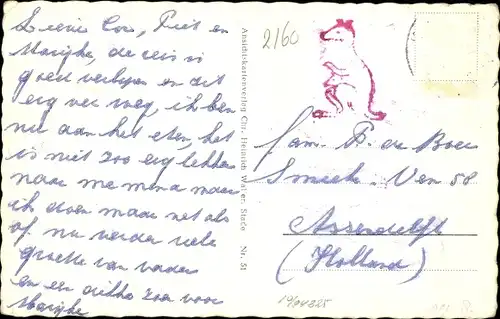 Lieve Cor, Piet en
Marijke, de reis is
goed verlopen en dit
erg ver weg, ik ben
nu aan het eten, het
is niet zoo erg lekker
naar me mina maar
ik doen maar net als
of nu verder vele
groeten van vader
en een dikke zoen voor
Marijke
Ansichtskartenverlag Chr. Heinrich Wal er, Stade Nr. 51
2160
Fam. P. de Boer
Smeek. Ven 58
Assendelft
(Holland)